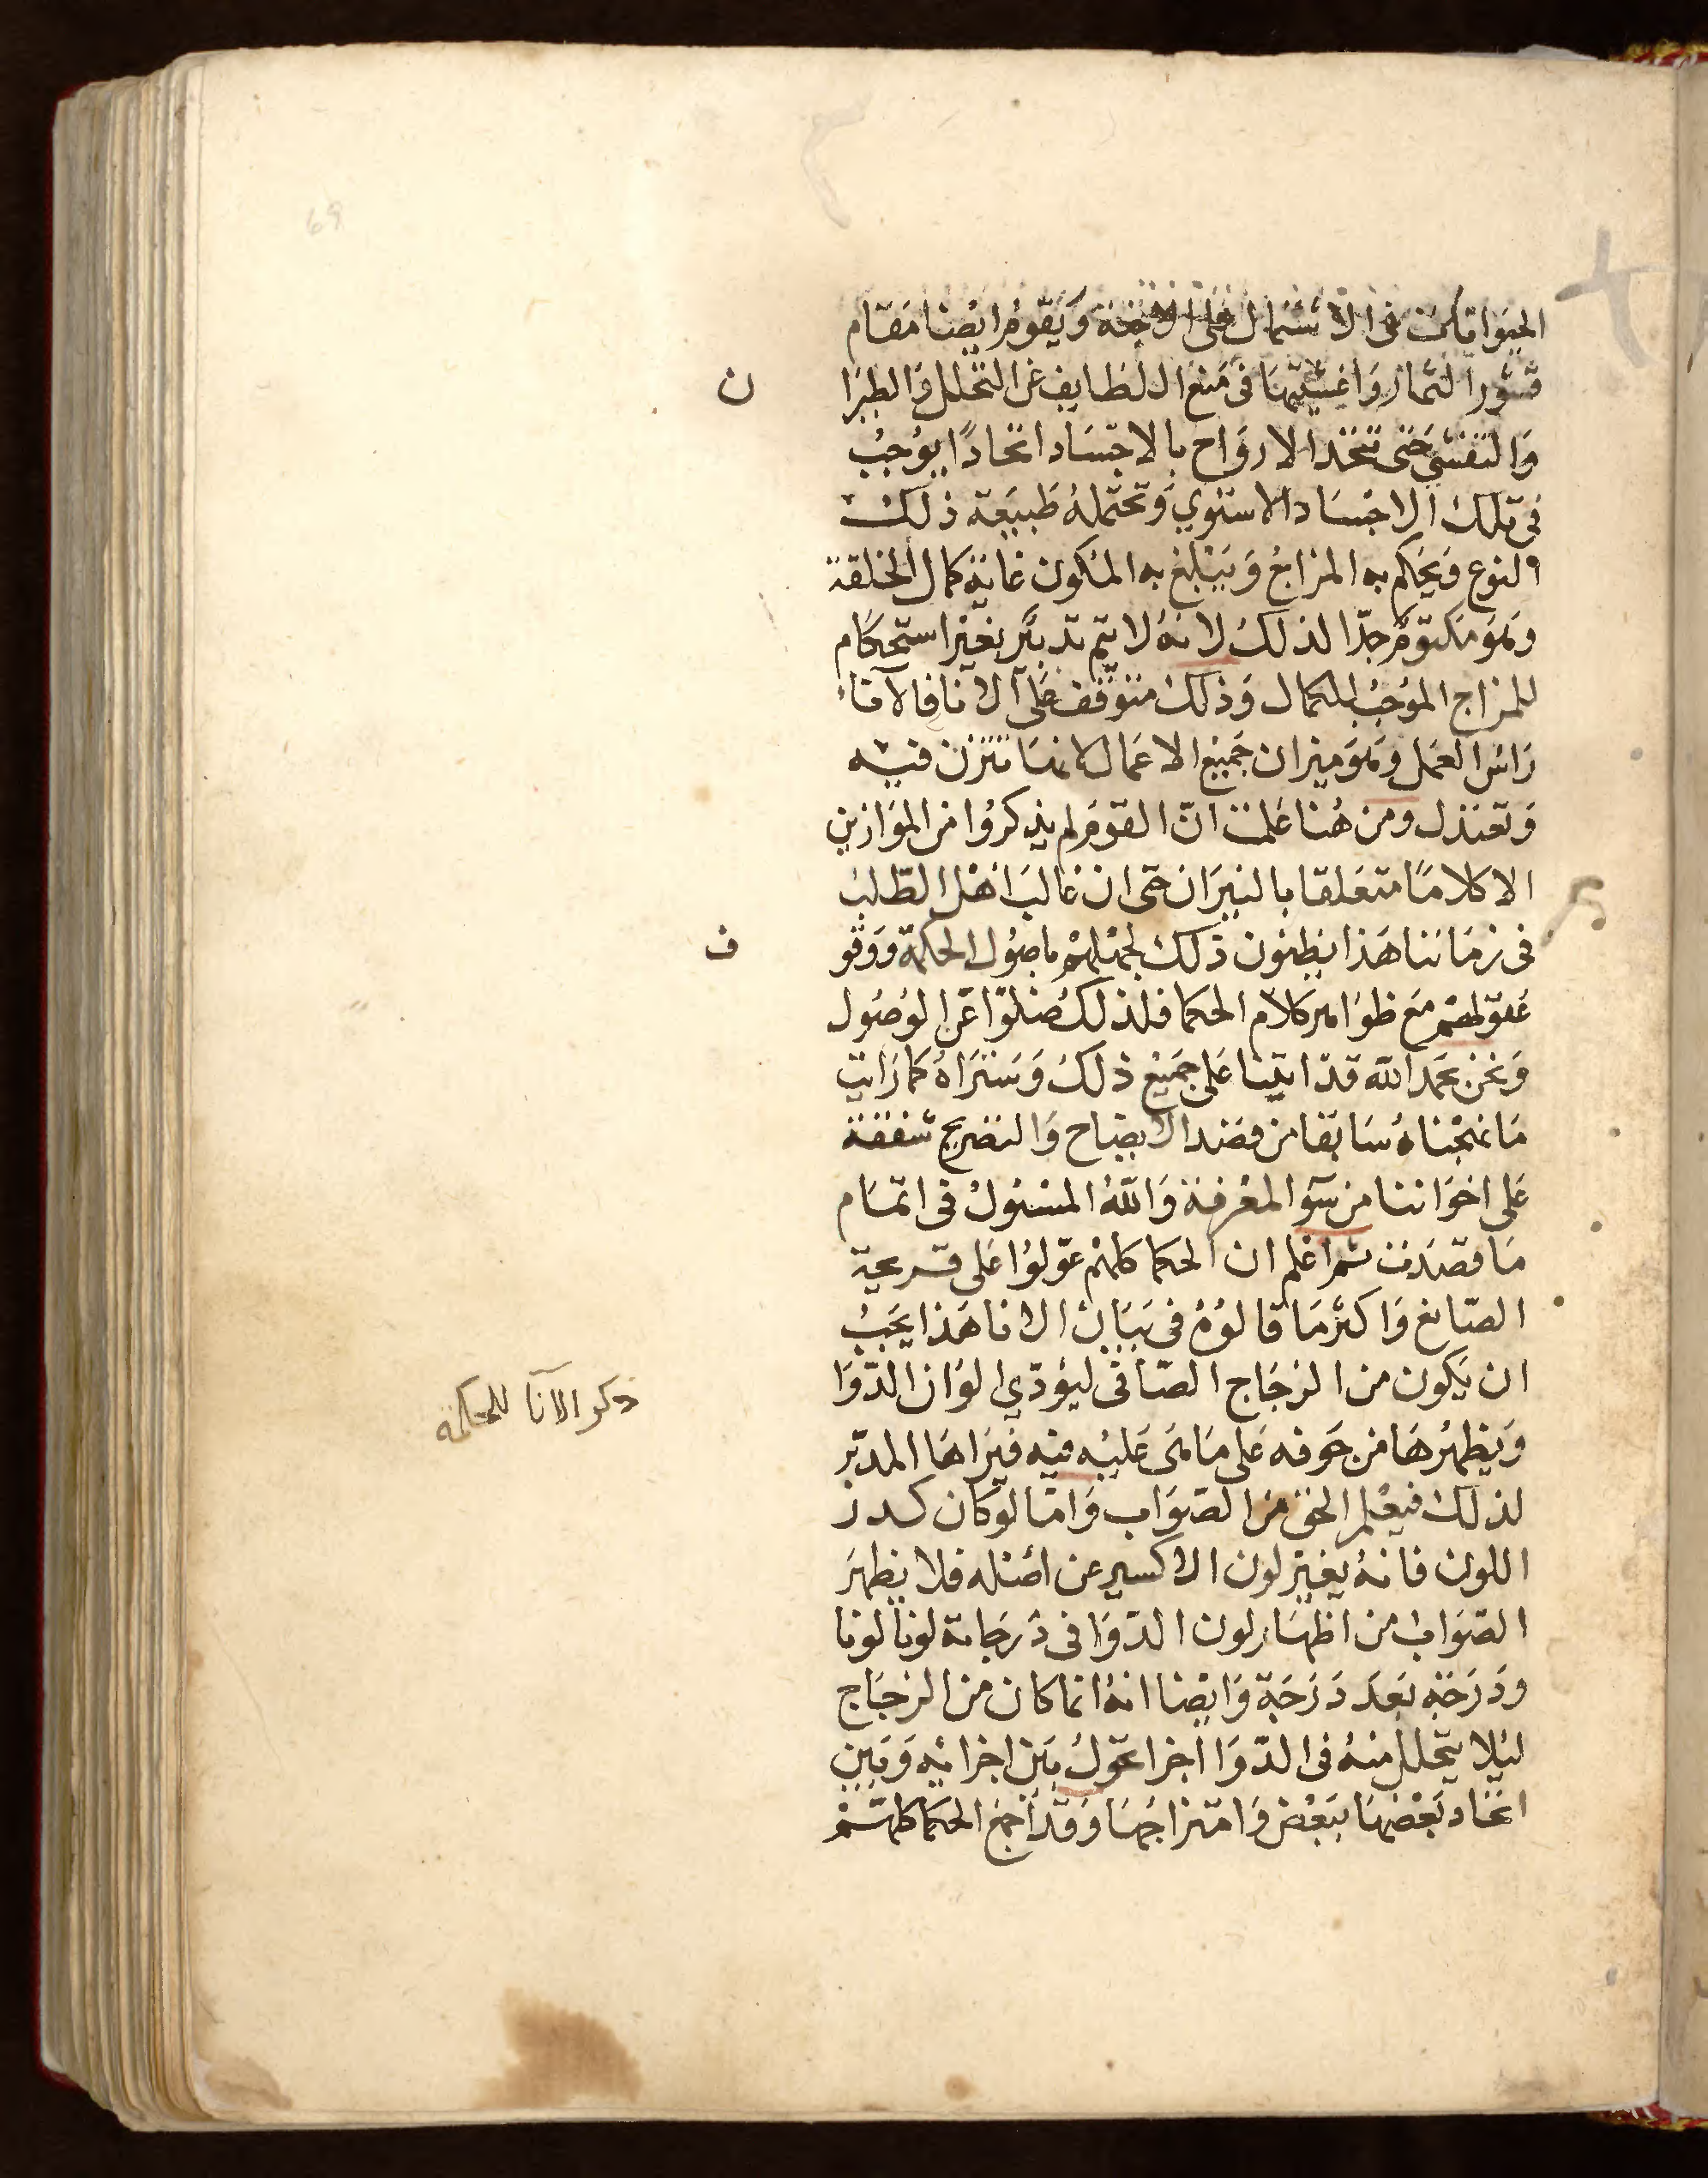 69
الحيوانات فى الاشتمال على الاجنة ويقوم ايضا مقام
قشور الثمار واغشيتها فى منع اللطايف عن التحلل والطيرا ن
والتفشي حتى تتحد الارواح بالاجساد اتحادًا يوجب
فى تلك الاجساد الاستوي وتحتمله طبيعة ذلك
النوع ويحكم به المزاج ويبلغ به المكون غاية كمال الخلقة
وهو مكتوم جدا لذلك لانه لا يتم تدبير بغير استحكام
للمزاج الموجب للكمال وذلك متوقف على الانا فالانا
راس العمل وهو ميزان جميع الاعمال لانها تتزن فيه
وتعتدل ومن هنا علمت انّ القوم لم يذكروا من الموازين
الا كلامًا متعلقا بالنيران حتى ان غالب اهل الطلب
فى زماننا هذا يظنون ذلك لجهلهم باصول الحكمة ووقو ف
عقولهم مع ظواهر كلام الحكما فلذلك ضلوا عن الوصول
ونحن بحمد الله قد اتينا على جميع ذلك وستراه كما رايت
ما نهجناه سابقا من قصد الايضاح والتصريح شفقة
على اخواننا من سو المعرفة والله المسئول فى اتمام
ما قصدت ثم اعلم ان الحكما كلهم عولوا على قريحة
الصانع واكثر ما قالوه فى بيان الانا هذا يجب
ان يكون من الزجاج الصافى ليؤدي الوان الدوا
ذكر الآنا للحكمه
ويظهرها من جوفه على ما هى عليه فيه فيراها المدبر
لذلك فيعلم الحق من الصواب واما لو كان كدر
اللون فانه يغير لون الاكسير عن اصله فلا يظهر
الصواب من اظهار لون الدوا فى درجاته لونا لونا
ودرجة بعد درجة وايضا انه انما كان من الزجاج
ليلا يتحلل منه فى الدوا اجزا تحول بين اجزايه وبين
اتحاد بعضها ببعض وامتزاجها وقد اجمع الحكما كلهم